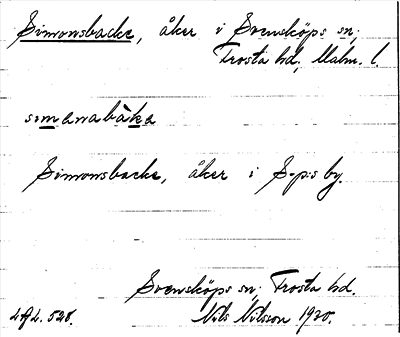 Simonsbacke, åker i Svensköps sn,
Frosta hd, Malm. l.
simanabàka
Simonsbacke, åker i S-ps by.
Svensköps sn, Frosta hd.
LAL. 528. Nils Nilsson 1920.